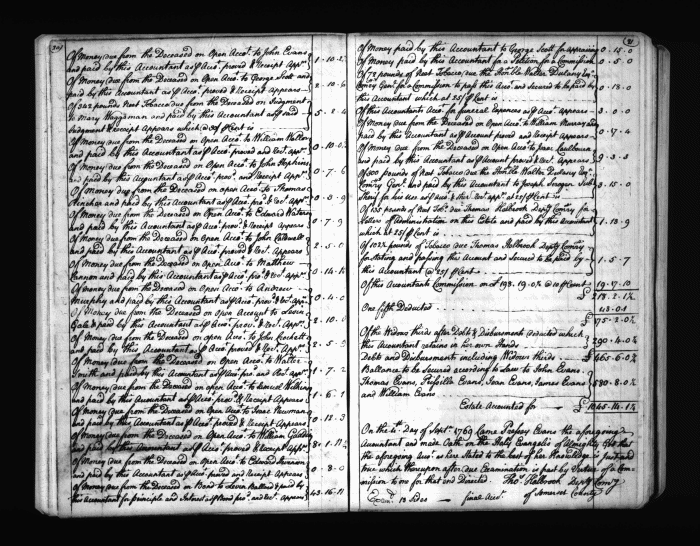 Of Money due from the Deceased on Open Acco.t to John Evans
and paid by this Accountant as p Acco.t proved & Receipt Appears 1.10.2
Of Money due from the Deceased on Open Acco.t to George Scott and
paid by this Accountant as p Acco.t proved & Receipt Appears 2.10.6
Of 342 pounds Neat Tobacco due from the Deceased on Judgment
to Mary Waggaman and paid by this Accountant as p said
Judgment & receipt Appears which @ 25/ p Cent is 5.2.
Of Money due from the Deceased on Open Acco.t to William
and paid by this Accountant as p Acco.t proved and Rec.t app.rs 0.10.
Of Money due from the Deceased on Open Acco.t to John Hopkins
and paid by this Accountant as p Acco.t prov.d and Receipt App.rs 0.7.6
Of Money due from the Deceased on open Acco.t to Thomas
and paid by this Accountant as p Acco.t prov.d & Rec.t app.rs 0.8.9
Of Money due from the Deceased on Open Acco.t to Edward Waters
and paid by this Accountant as p Acco.t prov.d & Receipt Appears 0.7.9
Of Money due from the Deceased on Open Acco.t to John Caldwell
and paid by this Accountant as p Acco.t proved & Rec.t Appears 2.5.0
Of Money due from the Deceased on Open Acco.t to Matthew
Cannon and paid by this Accountant as p Acco.t prov.d & Rec.t App.rs 0.14.
Of Money due from the Deceased on Open Acco.t to Andrew
Murphy and paid by this Accountant as p Acco.t prov.d & Rec.t app.rs 0.4.0
Of Money due from the Deceased on Open Account to Levin
Gale & paid by this Accountant as p Acco.t prov.d & Rec.t App.rs 8.10.0
Of Money due from the Deceased on Open Acco.t to John Rockett
and paid by this Accountant as p Acco.t proved & Rec.t App.rs 2.5.3
Of Money due from the Deceased on Open Acco.t to Walter
Smith and paid by this Accountant as p Acco.t prov.d and Rec.t app.rs 1.7.2
Of Money due from the Deceased on open Acco.t to Samuel
and paid by this Accountant as p Acco.t prov.d & Receipt Appears 1.6.1
Of Money due from the Deceased on open Acco.t to Isaac Newman
and paid by this Accountant as p Acco.t proved & Receipt Appears 0.12.3
Of money due from the Deceased on Open Acco.t to William
and paid by this Accountant as p Acco.t proved & Receipt App.rs 8.1.11½
Of Money due from the Deceased on Open Acco.t to Edward
and paid by this Accountant as p Acco.t proved and Receipt Appears 0.8.0
Of Money due from the Deceased on Bond to Levin Ballard & paid by
this Accountant for Principle and Interest as p Bond prov.d and Rec.t Appears 43.16.11
Of Money paid by this Accountant to George Scott for appraising 0.15.0
Of Money paid by this Accountant for a Petition for a Commission 0.5.0
Of 72 pounds of Neat Tobacco due the Hon.ble Walter Dulany Esq.r
Com.ry Gen.l for Commission to pass this Acco.t and secured to be paid by
this Accountant which at 25/ p Cent is 0.18.0
Of this Accountants Acco.t for funeral Expences as p Acco.t appears 3.0.0
Of Money due from the Deceased on Open Acco.t to William Murray
paid by this Accountant as p Account proved and Receipt appears 0.7.4
Of Money due from the Deceased on Open Acco.t to Jean
and paid by this Accountant as p Account proved & Rec.t Appears 9.3.3
Of 300 pounds of Neat Tobacco due the Hon.ble Walter Dulany Esq.r
Com.ry Gen.l and paid by this Accountant to Joseph
Sherif for his fees as p Acco.t & this Rec.t app.rs at 25/ p Cent is 3.15.0
Of 155 pounds of Neat Tob.o due Thomas Holbrook Dep.ty Com.ry for
Letters of Administration on this Estate and paid by this Accountant
which at 25/ p Cent is 1.18.9
Of 102½ pounds of Tobacco due Thomas Holbrook Dep.ty Com.ry
for Stating and passing this Account and Secured to be paid by
this Accountant @ 25/ p Cent 1.5.7
Of this Accountants Commission on £198.19.0¾ @ 10 p Cent 19.17.10
£218.2.1¼
One fifth Deducted 43.0.1
£175.2.0¼
Of the Widows thirds after Debts & Disbursements Deducted which
this Accountant retains in her own Hands 290.4.0¼
Debts and Disbursements including Widows thirds £465.6.0½
Ballance to be Secured according to Law to John Evans
Thomas Evans, Priscilla Evans, Joan Evans, James Evans
and William Evans 580.8.0¾
Estate Accounted for £1045.14.1¼
On the 4.th Day of Sept.r 1769 Came Evans the aforegoing
Accountant and made Oath on the Holy Evangels of Almighty God that
the aforegoing Acco.t as here Stated to the best of her Knowledge is just and
true which Whereupon after due Examination is past by Virtue of a Com=
mission to me for that end Directed. Tho.s Holbrook Dep.ty Com.ry
of Somerset County
Exam.d 10 Sides - final Acco.t